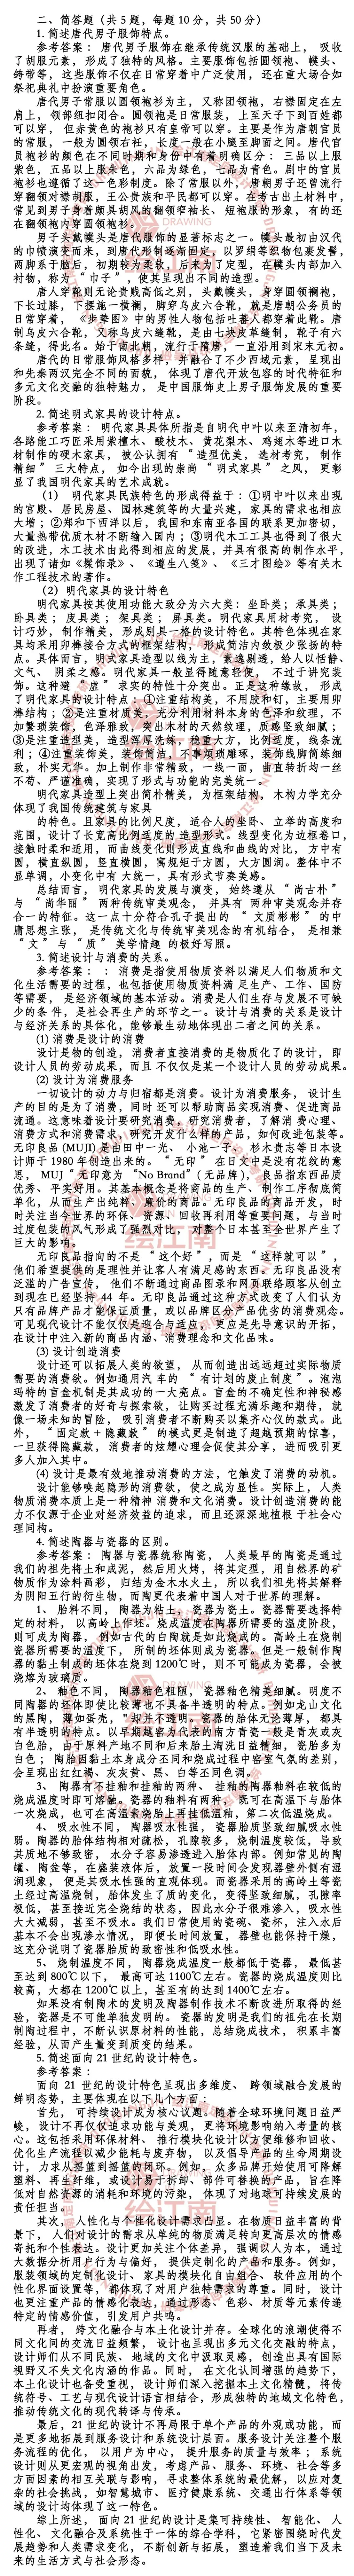 二、简答题（共 5 题，每题 10 分，共 50 分）
1. 简述唐代男子服饰特点。
参考答案： 唐代男子服饰在继承传统汉服的基础上， 吸收
了胡服元素， 形成了独特的风格。主要服饰包括圆领袍、幞头、
銙带等， 这些服饰不仅在日常穿着中广泛使用， 还在重大场合如
祭祀典礼中扮演重要角色。
唐代男子常服以圆领袍衫为主， 又称团领袍， 右襟固定在左
肩上， 领部纽扣闭合。圆领袍是日常服装， 上至天子下到百姓都
可以穿， 但赤黄色的袍衫只有皇帝可以穿。主要是作为唐朝官员
的常服， 一般为圆领右衽， 长度一般在小腿至脚面之间。唐代官
员袍衫的颜色在不同时期和身份中有着明确区分： 三品以上服
紫色， 五品以上服朱色， 六品为绿色， 七品为青色。
袍衫也遵循了这一色彩制度。除了常服以外， 唐朝男子还曾流行
穿翻领对襟胡服， 王公贵族和平民都可以穿。在考古出土材料中，
常见到男子身着颇具胡风的翻领窄袖长、短袍服的形象， 有的还
在翻领袍内穿圆领袍衫。
男子头戴幞头是唐代服饰的显著标志之一。幞头最初由汉代
的巾帻演变而来， 到唐代形制逐渐固定， 以罗绢等织物包裹发髻，
两脚系于脑后， 初期较为柔软， 后来为了定型， 在幞头内部加入
衬物，称为 “ 巾子 ” ， 使其呈现出不同的造型。
唐人穿靴则无论贵贱高低之别， 头戴幞头， 身穿圆领襕袍，
下长过膝， 下摆施一横襕， 脚穿乌皮六合靴， 这是唐朝公务员的
日常穿着， 《步辇图》中的男性人物包括吐蕃人都穿着此靴。唐
制乌皮六合靴， 又称乌皮六缝靴， 是由七块皮革缝制， 靴子有六
条缝，得此名。始于南北朝，流行于隋唐，一直沿用到宋末元初。
唐代的日常服饰风格多样， 并融合了不少西域元素， 呈现出
和先秦两汉完全不同的面貌， 体现了唐代开放包容的时代特征和
多元文化交融的独特魅力， 是中国服饰史上男子服饰发展的重要
阶段。
2. 简述明式家具的设计特点。
参考答案： 明代家具具体所指是自明代中叶以来至清初年，
各路能工巧匠采用紫檀木、 酸枝木、 黄花梨木、 鸡翅木等进口木
材制作的硬木家具， 被公认拥有 “ 造型优美， 选材考究， 制作
精细 ” 三大特点， 如今出现的崇尚 “ 明式家具 ” 之风， 更彰
显了我国明代家具的艺术成就。
（1） 明代家具民族特色的形成得益于：①明中叶以来出现
的宫殿、居民房屋、园林建筑等的大量兴建，家具的需求也相应
大增；②郑和下西洋以后，我国和东南亚各国的联系更加密切，
大量热带优质木材不断输入国内；③明代木工工具也得到了很大
的改进，木工技术由此得到相应的发展，并具有很高的制作水平，
出现了诸如《髹饰录》、 《遵生八笺》、 《三才图绘》等有关木
作工程技术的著作。
（2） 明代家具的设计特色
明代家具按其使用功能大致分为六大类：坐卧类；承具类；
卧具类； 庋具类； 架具类； 屏具类。明代家具用材考究， 设
计巧妙， 制作精美， 形成别具一格的设计特色。其特色体现在家
具均采用卯榫接合方式的框架结构， 于外形简洁内敛极少张扬的特
点。具体而言， 明式家具造型以线为主，素逸剔透，给人以恬静、
文气、 阴柔之感。明代家具一般显得随意轻便， 不过于讲究装
饰。这种避 “ 虚 ” 求实的特性十分突出。正是这种缘故， 形成
了明代家具的设计特点：①注重结构美，不用胶和钉，主要用卯
榫结构；②是注重材质美，充分利用材料本身的色泽和纹理，不
加繁琐装饰，色泽雅致，突出木材的天然纹理，质感坚致细腻；
③是注重造型美，造型浑厚洗练，稳重大方，比例适度，线条流
利；④注重装饰美，装饰简洁，不事琐琐雕琢，装饰线脚简练细
致，朴实无华。加上制作非常精致，一线一面，曲直转折均一丝
不苟、严谨准确，实现了形式与功能的完美统一。
明代家具造型上突出简朴精美，为框架结构，木构力学充分
体现了我国传统建筑与家具
的特色。且家具的比例尺度，适合人的坐卧、立举的高度和
范围，设计了长宽高比例适度的造型形态。线型变化为边框卷口，
接触时柔和适用，而曲线变化则形成直线和曲线的对比， 方中有
圆，横直纵圆，竖直横圆，寓规矩于方圆，大方圆润。整体中不
显单调，小变化中有 大统一，具有形式节奏美感。
总结而言， 明代家具的发展与演变， 始终遵从 “ 尚古朴 ”
与 “ 尚华丽 ” 两种传统审美观念， 并具有 两种审美观念并存
合一的特征。这一点十分符合孔子提出的 “ 文质彬彬 ” 的中
庸思想主张， 是传统文化与传统审美观念的有机结合， 是相兼
“ 文 ” 与 “ 质 ” 美学情趣 的极好写照。
3. 简述设计与消费的关系。
参考答案： ： 消费是指使用物质资料以满足人们物质和文
化生活需要的过程，也包括使用物质资料满 足生产、工作、国防
等需要， 是经济领域的基本活动。消费是人们生存与发展不可缺
少的条 件，是社会再生产的环节之一。设计与消费的关系是设计
与经济关系的具体化，能够最生动地体现出二者之间的关系。
(1) 消费是设计的消费
设计是物的创造，消费者直接消费的是物质化了的设计，即
设计人员的劳动成果，而且 不仅仅是某一个设计人员的劳动成果。
(2) 设计为消费服务
一切设计的动力与归宿都是消费。设计为消费服务， 设计生
产的目的是为了消费，同时 还可以帮助商品实现消费、促进商品
流通。这意味着设计要研究消费，研究消费者，了解消 费心理、
消费方式和消费需求，研究开发什么样的产品，如何改进包装等。
无印良品 (MUJI) 是由田中一光、 小池一子、 杉木贵志等日本设
计师于 1980 年创造出来的。 “无印” 在日文中是没有花纹的意
思， MUJ “无印意为 “No Brand”（无品牌）， 良品指东西品质
优秀、平实好用。其基本概念是将商品的生产、 制作工序彻底简
单化，从而生产出纯粹、廉价的商品。无印良品的商品开发， 时
时关注当今世界的环保、资源、 回收再利用等重要问题，与当时
过度包装的风气形成了强烈对比，对整个日本甚至全世界产生了
巨大的影响。
无印良品指向的不是 “ 这个好 ” 而是 “ 这样就可以 ” ，
他们希望提供的是理性并让客人有满足感的东西。无印良品没有
泛滥的广告宣传， 他们不断通过商品图录和网页联络顾客从创立
到现在已经坚持了 44 年。无印良品通过这种方式改变了人们认为
只有品牌产品才能保证质量，或以品牌区分产品优劣的消费观念。
可见现代设计不能仅仅是适合与适应， 更应是先导意识的开拓，
在设计中注入新的商品内涵、消费理念和文化品味。
(3) 设计创造消费
设计还可以拓展人类的欲望， 从而创造出远远超过实际物质
需要的消费欲。例如通用汽 车的 “ 有计划的废止制度 ” 。泡泡
玛特的盲盒机制是其成功的一大亮点。盲盒的不确定性和神秘感
激发了消费者的好奇与探索欲，让购买过程充满乐趣和期待， 就
像一场未知的冒险， 吸引消费者不断购买以集齐心仪的款式。此
外， “ 固定款 + 隐藏款 ” 的模式更是制造了超越预期的惊喜，
一旦获得隐藏款，消费者的炫耀心理会促使其分享，进而吸引更
多人加入其中。
(4) 设计是最有效地推动消费的方法，它触发了消费的动机。
设计能够唤起隐形的消费欲， 使之成为显性。实际上，人类
物质消费本质上是一种精神 消费和文化消费。设计创造消费的能
力不仅源于企业对经济效益的追求，而且还深深地植根 于社会心
理同构。
4. 简述陶器与瓷器的区别。
参考答案： 陶器与瓷器统称陶瓷， 人类最早的陶瓷是通过
我们的祖先将土和成泥，然后用火烤，将其定型，用自然界的矿
物质作为涂料画彩，归结为金木水火土，所以我们祖先将其解释
为阴阳五行的衍生物，而陶更代表着中国人对于世界的理解。
1、 胎料不同，陶器为粘土，瓷器为瓷土。瓷器需要选择特
定的材料， 以高岭土作坯。烧成温度在陶器所需要的温度阶段，
则可成为陶器， 例如古代的白陶就是如此烧成的。高岭土在烧制
瓷器所需要的温度下， 所制的坯体则成为瓷器。但是一般制作陶
器的黏土制成的坯体在烧到 1200℃时， 则不可能成为瓷器，会被
烧熔为玻璃质。
2、 釉色不同， 陶器釉色粗犷， 瓷器釉色精美细腻。明度不
同陶器的坯体即使比较薄也不具备半透明的特点。例如龙山文化
的黑陶， 薄如蛋壳，" 却并不透明。瓷器的胎体无论薄厚， 都具
有半透明的特点。以早期越窑为代表的南方青瓷一般是青灰或灰
白色胎，由于原料产地不同和后来胎土淘洗日益精细， 瓷胎多为
白色； 陶胎因黏土本身成分不同和烧成过程中窑室气氛的差别，
会呈现出红红褐、灰灰黄、黑、白等不同色调。
3、 陶器有不挂釉和挂釉的两种、 挂釉的陶器釉料在较低的
烧成温度时即可熔融。瓷器的釉料有两种， 既可在高温下与胎体
一次烧成，也可在高温素烧胎上再挂低温釉，第二次低温烧成。
4、 吸水性不同，陶器吸水性强， 瓷器胎质坚致细腻吸水性
弱。陶器的胎体结构相对疏松， 孔隙较多， 烧制温度较低， 导致
其质地不够致密， 水分子容易渗透进入胎体内部。例如常见的陶
罐、 陶盆等，在盛装液体后，放置一段时间会发现器壁外侧有湿
润现象， 便是其吸水性强的直观体现。而瓷器采用的高岭土等瓷
土经过高温烧制，胎体发生了质的变化，变得坚致细腻，孔隙率
极低，甚至接近完全烧结的状态，因此水分子很难渗入，吸水性
大大减弱，甚至不吸水。我们日常使用的瓷碗、瓷杯，注入水后
基本不会出现渗水情况，即便长时间放置，器壁也能保持干燥，
这充分说明了瓷器胎质的致密性和低吸水性。
5、 烧制温度不同，陶器烧成温度一般都低于瓷器， 最低甚
至达到 800℃以下， 最高可达 1100℃左右。瓷器的烧成温度则比
较高，大都在 1200℃以上，甚至有的达到 1400℃左右。
如果没有制陶术的发明及陶器制作技术不断改进所取得的经
验， 瓷器是不可能单独发明的。 瓷器的发明是我们的祖先在长期
制陶过程中，不断认识原材料的性能，总结烧成技术， 积累丰富
经验，从而产生量变到质变的结果。
5. 简述面向 21 世纪的设计特色。
参考答案：
面向 21 世纪的设计特色呈现出多维度、 跨领域融合发展的
鲜明态势，主要体现在以下几个方面：
首先， 可持续设计成为核心议题。随着全球环境问题日益严
峻， 设计不再仅仅追求功能与美观， 更将环境影响纳入考量的核
心。这包括采用环保材料、推行模块化设计以方便维修和回收、
优化生产流程以减少能耗与废弃物， 以及倡导产品的生命周期设
计，力求从摇篮到摇篮的闭环。例如，众多品牌开始使用可降解
塑料、再生纤维，或设计易于拆卸、部件可替换的产品，旨在降
低对自然资源的消耗和环境的污染， 体现了对地球可持续发展的
责任担当。
其次， 人性化与个性化设计需求凸显。在物质日益丰富的背
景下， 人们对设计的需求从单纯的物质满足转向更高层次的情感
寄托和个性表达。设计更加关注个体差异，强调以人为本，通过
大数据分析用户行为与偏好， 提供定制化的产品和服务。例如，
服装领域的定制化设计、 家具的模块化自由组合、 软件应用的个
性化界面设置等， 都体现了对用户独特需求的尊重。同时， 设计
也更注重产品的情感化表达，通过形态、色彩、材质等元素传递
特定的情感价值，引发用户共鸣。
再者， 跨文化融合与本土化设计并存。全球化的浪潮使得不
同文化间的交流日益频繁， 设计也呈现出多元文化交融的特点，
设计师们从不同民族、地域的文化中汲取灵感，创造出具有国际
视野又不失文化内涵的作品。同时， 在文化认同增强的趋势下，
本土化设计也备受重视，设计师们深入挖掘本土文化精髓， 将传
统符号、工艺与现代设计语言相结合，形成独特的地域文化特色，
推动传统文化的现代转译与传承。
最后，21 世纪的设计不再局限于单个产品的外观或功能，而
是更多地拓展到服务设计和系统设计层面。服务设计关注整个服
务流程的优化， 以用户为中心， 提升服务的质量与效率； 系统
设计则从更宏观的视角出发，考虑产品、服务、环境、社会等多
方面因素的相互关联与影响， 寻求整体系统的最优解， 以应对复
杂的社会挑战，如智慧城市、医疗健康系统、交通出行体系等领
域的设计均体现了这一特色。
综上所述， 面向 21 世纪的设计是集可持续性、 智能化、 人
性化、 文化融合及系统性于一体的综合学科， 它紧密围绕时代发
展趋势和人类需求变化，不断创新与拓展，塑造着我们当下及未
来的生活方式与社会形态。
绘江南
DRAWING